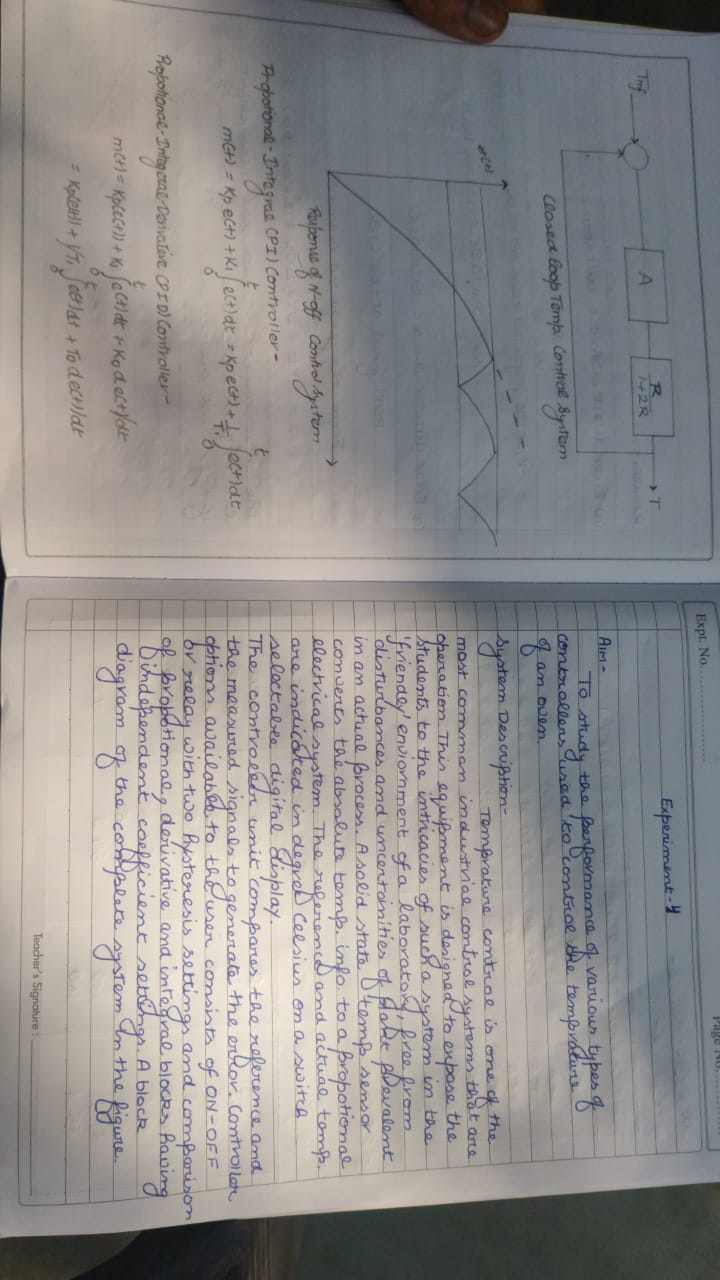 Tref
A
R
1+2R
T
Closed Loop Temp. Control System
c(t)
Response of N-off Control System
Propotional-Integral (PI) Controller-
m(t) = Kp e(t) + KI ∫₀ᵗ e(t)dt = Kp e(t) + 1/TI ∫₀ᵗ e(t)dt
Propotional-Integral-Derivative (PID) Controller-
m(t) = Kp(e(t)) + KI ∫₀ᵗ e(t)dt + KD de(t)/dt
= Kp(e(t)) + 1/TI ∫₀ᵗ e(t)dt + TD de(t)/dt
Expt. No.
Page No.
Experiment-4
Aim-
To study the performance of various types of
controllers used to control the temprature
of an oven.
System Description-
Temprature control is one of the
most common industrial control systems that are
operation This equipment is designed to expose the
students to the intricacies of such a system in the
'friendly' enviornment of a laboratory, free from
disturbances and uncertainities of plant prevalent
in an actual process. A solid state temp sensor
converts the absolute temp. info to a propotional
electrical system. The reference and actual temp.
are indicated in degree Celsius on a switch
selectable digital display.
The controller unit compares the reference and
the measured signals to generate the error. Controller
options available to the user consists of ON-OFF
or relay with two hysteresis settings and comparison
of propotional, derivative and integral blocks having
independent coefficient settings. A block
diagram of the complete system in the figure.
Teacher's Signature :